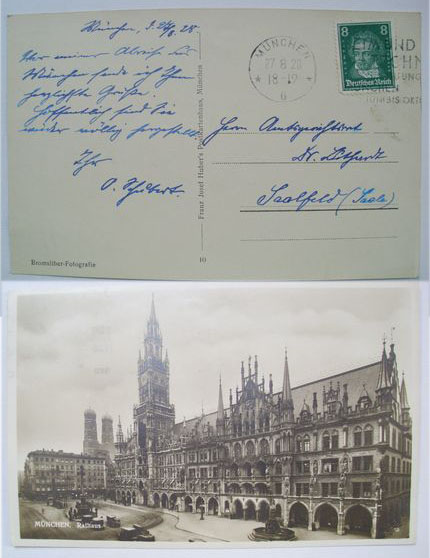 München, d. 26/8. 28.
Vor meiner Abreise aus
München sende ich Ihnen
herzlichste Grüße.
Hoffentlich sind Sie
wieder völlig hergestellt.
Ihr
O. Schubert.
Bromsilber-Fotografie
Franz Josef Huber's Postkartenhaus, München
10
MÜNCHEN
27 8 28
18-19
6
8 8
Deutsches Reich
Herrn Amtsgerichtsrat
Dr.
Saalfeld (Saale)
MÜNCHEN, Rathaus